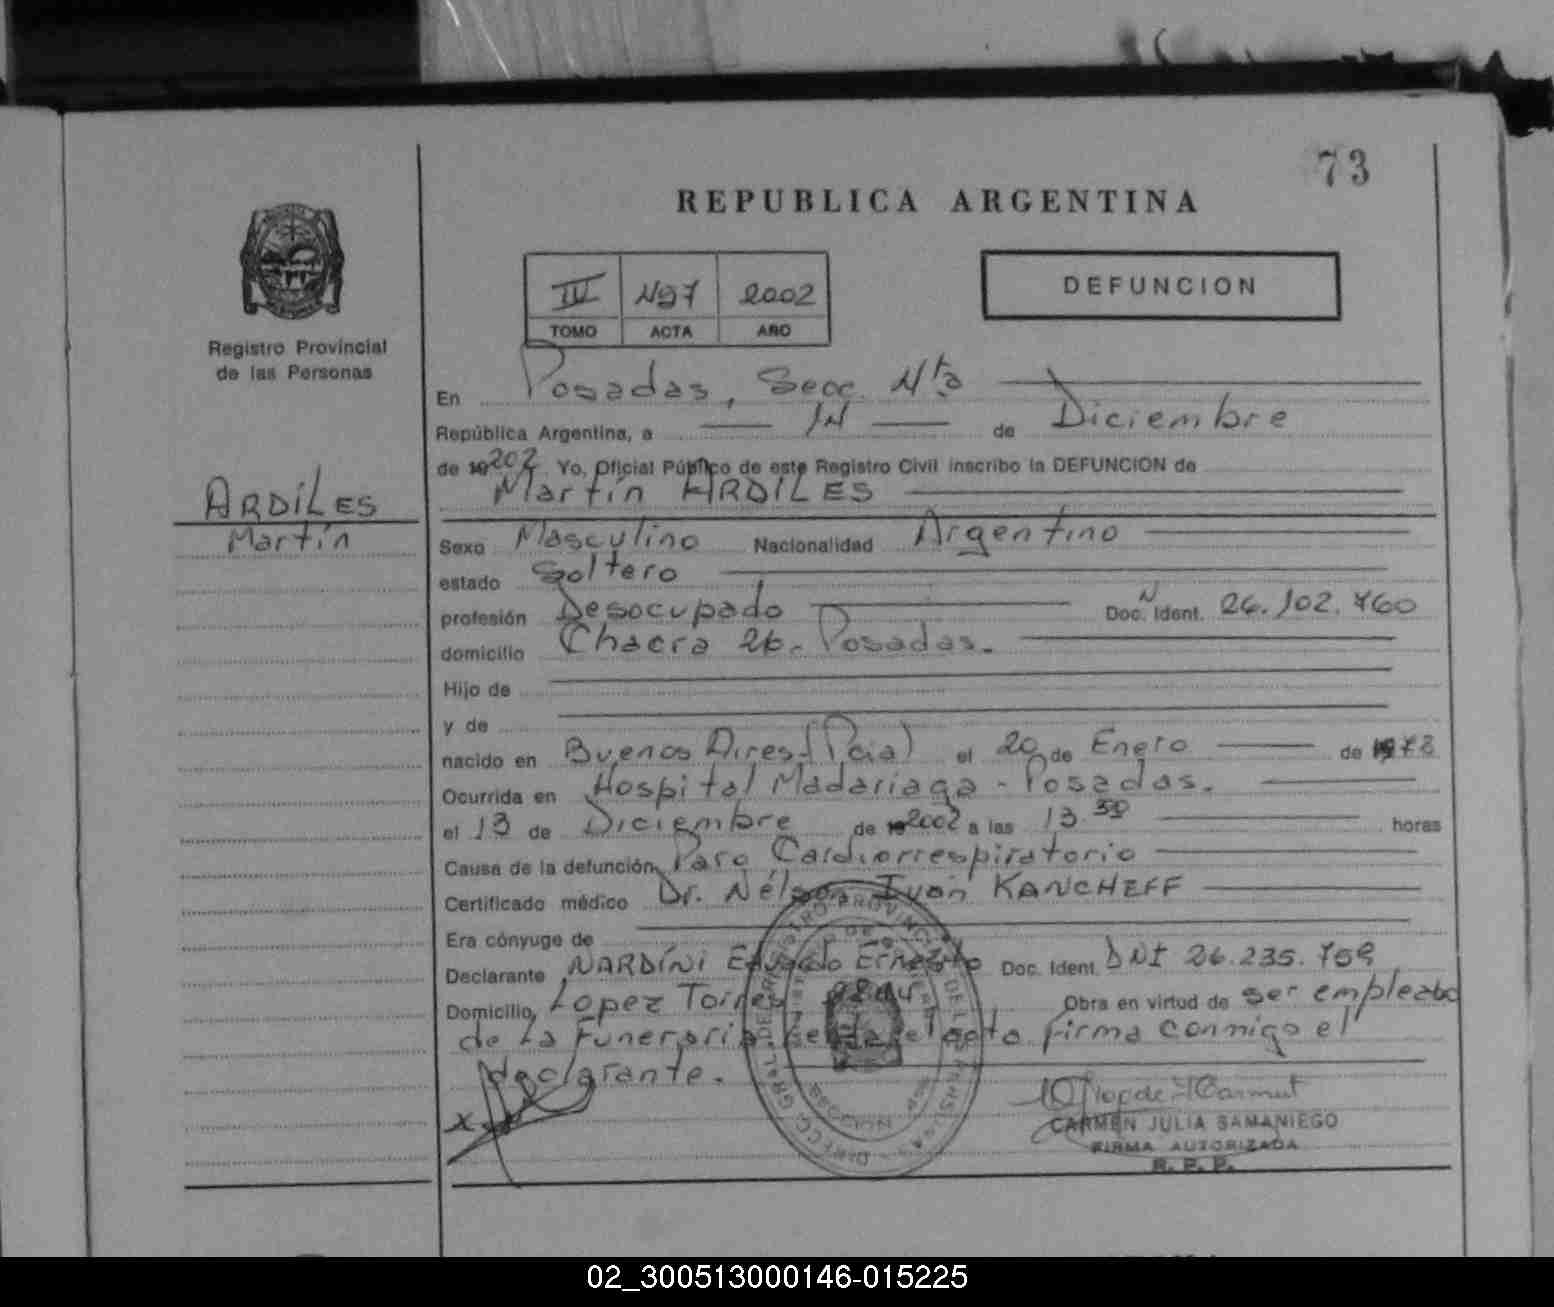 73
REPUBLICA ARGENTINA
DEFUNCION
III 497 2002
TOMO ACTA AÑO
Registro Provincial
de las Personas
ARDILES
Martín
En Posadas, Secc. 4ta
República Argentina, a 14 de Diciembre
de 2002 Yo, Oficial Público de este Registro Civil inscribo la DEFUNCION de
Martín ARDILES
Sexo Masculino Nacionalidad Argentino
estado Soltero
profesión Desocupado Doc. Ident. 26.102.760
domicilio Chacra 26. Posadas.
Hijo de
y de
nacido en Buenos Aires (Pcia) el 20 de Enero de 1978
Ocurrida en Hospital Madariaga - Posadas.
el 13 de Diciembre de 2002 a las 13.30 horas
Causa de la defunción Paro Cardiorrespiratorio
Certificado médico Dr. Nélson Iván KANCHEFF
Era cónyuge de
Declarante NARDINI Eduardo Ernesto Doc. Ident. DNI 26.235.759
Domicilio Lopez Torres Obra en virtud de ser empleado
de La Funeraria firma conmigo el
declarante.
x
CARMEN JULIA SAMANIEGO
FIRMA AUTORIZADA
R. P. P.
02_300513000146-015225